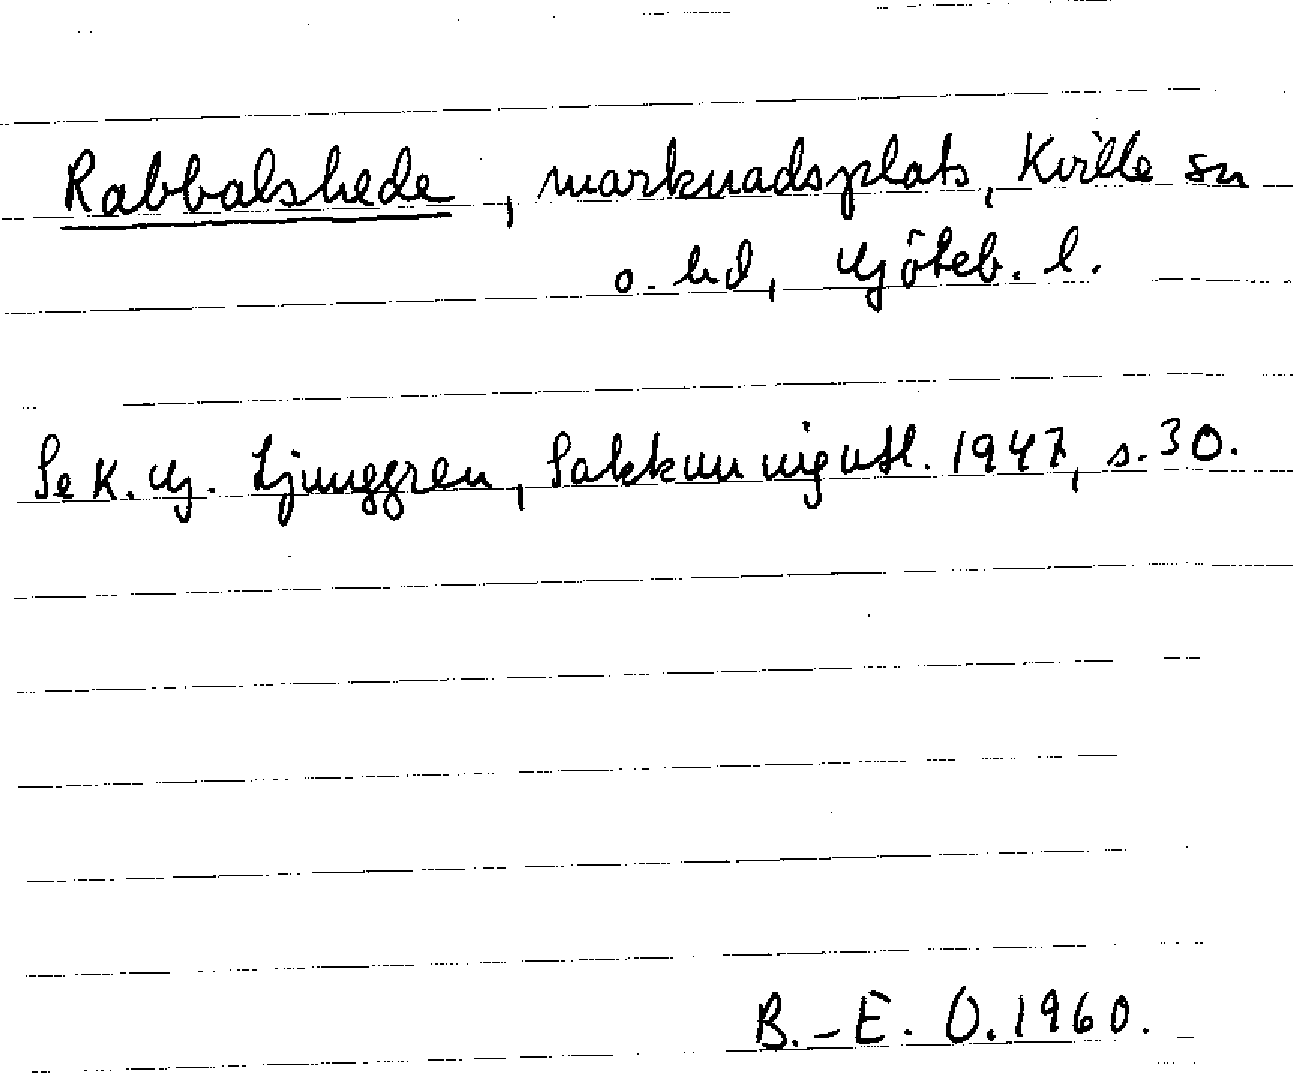 Rabbalshede, marknadsplats, Kville sn
o. hd, Göteb. l.
Se K. G. Ljunggren, Sakkunnigutl. 1947, s. 30.
B.-E. O. 1960.